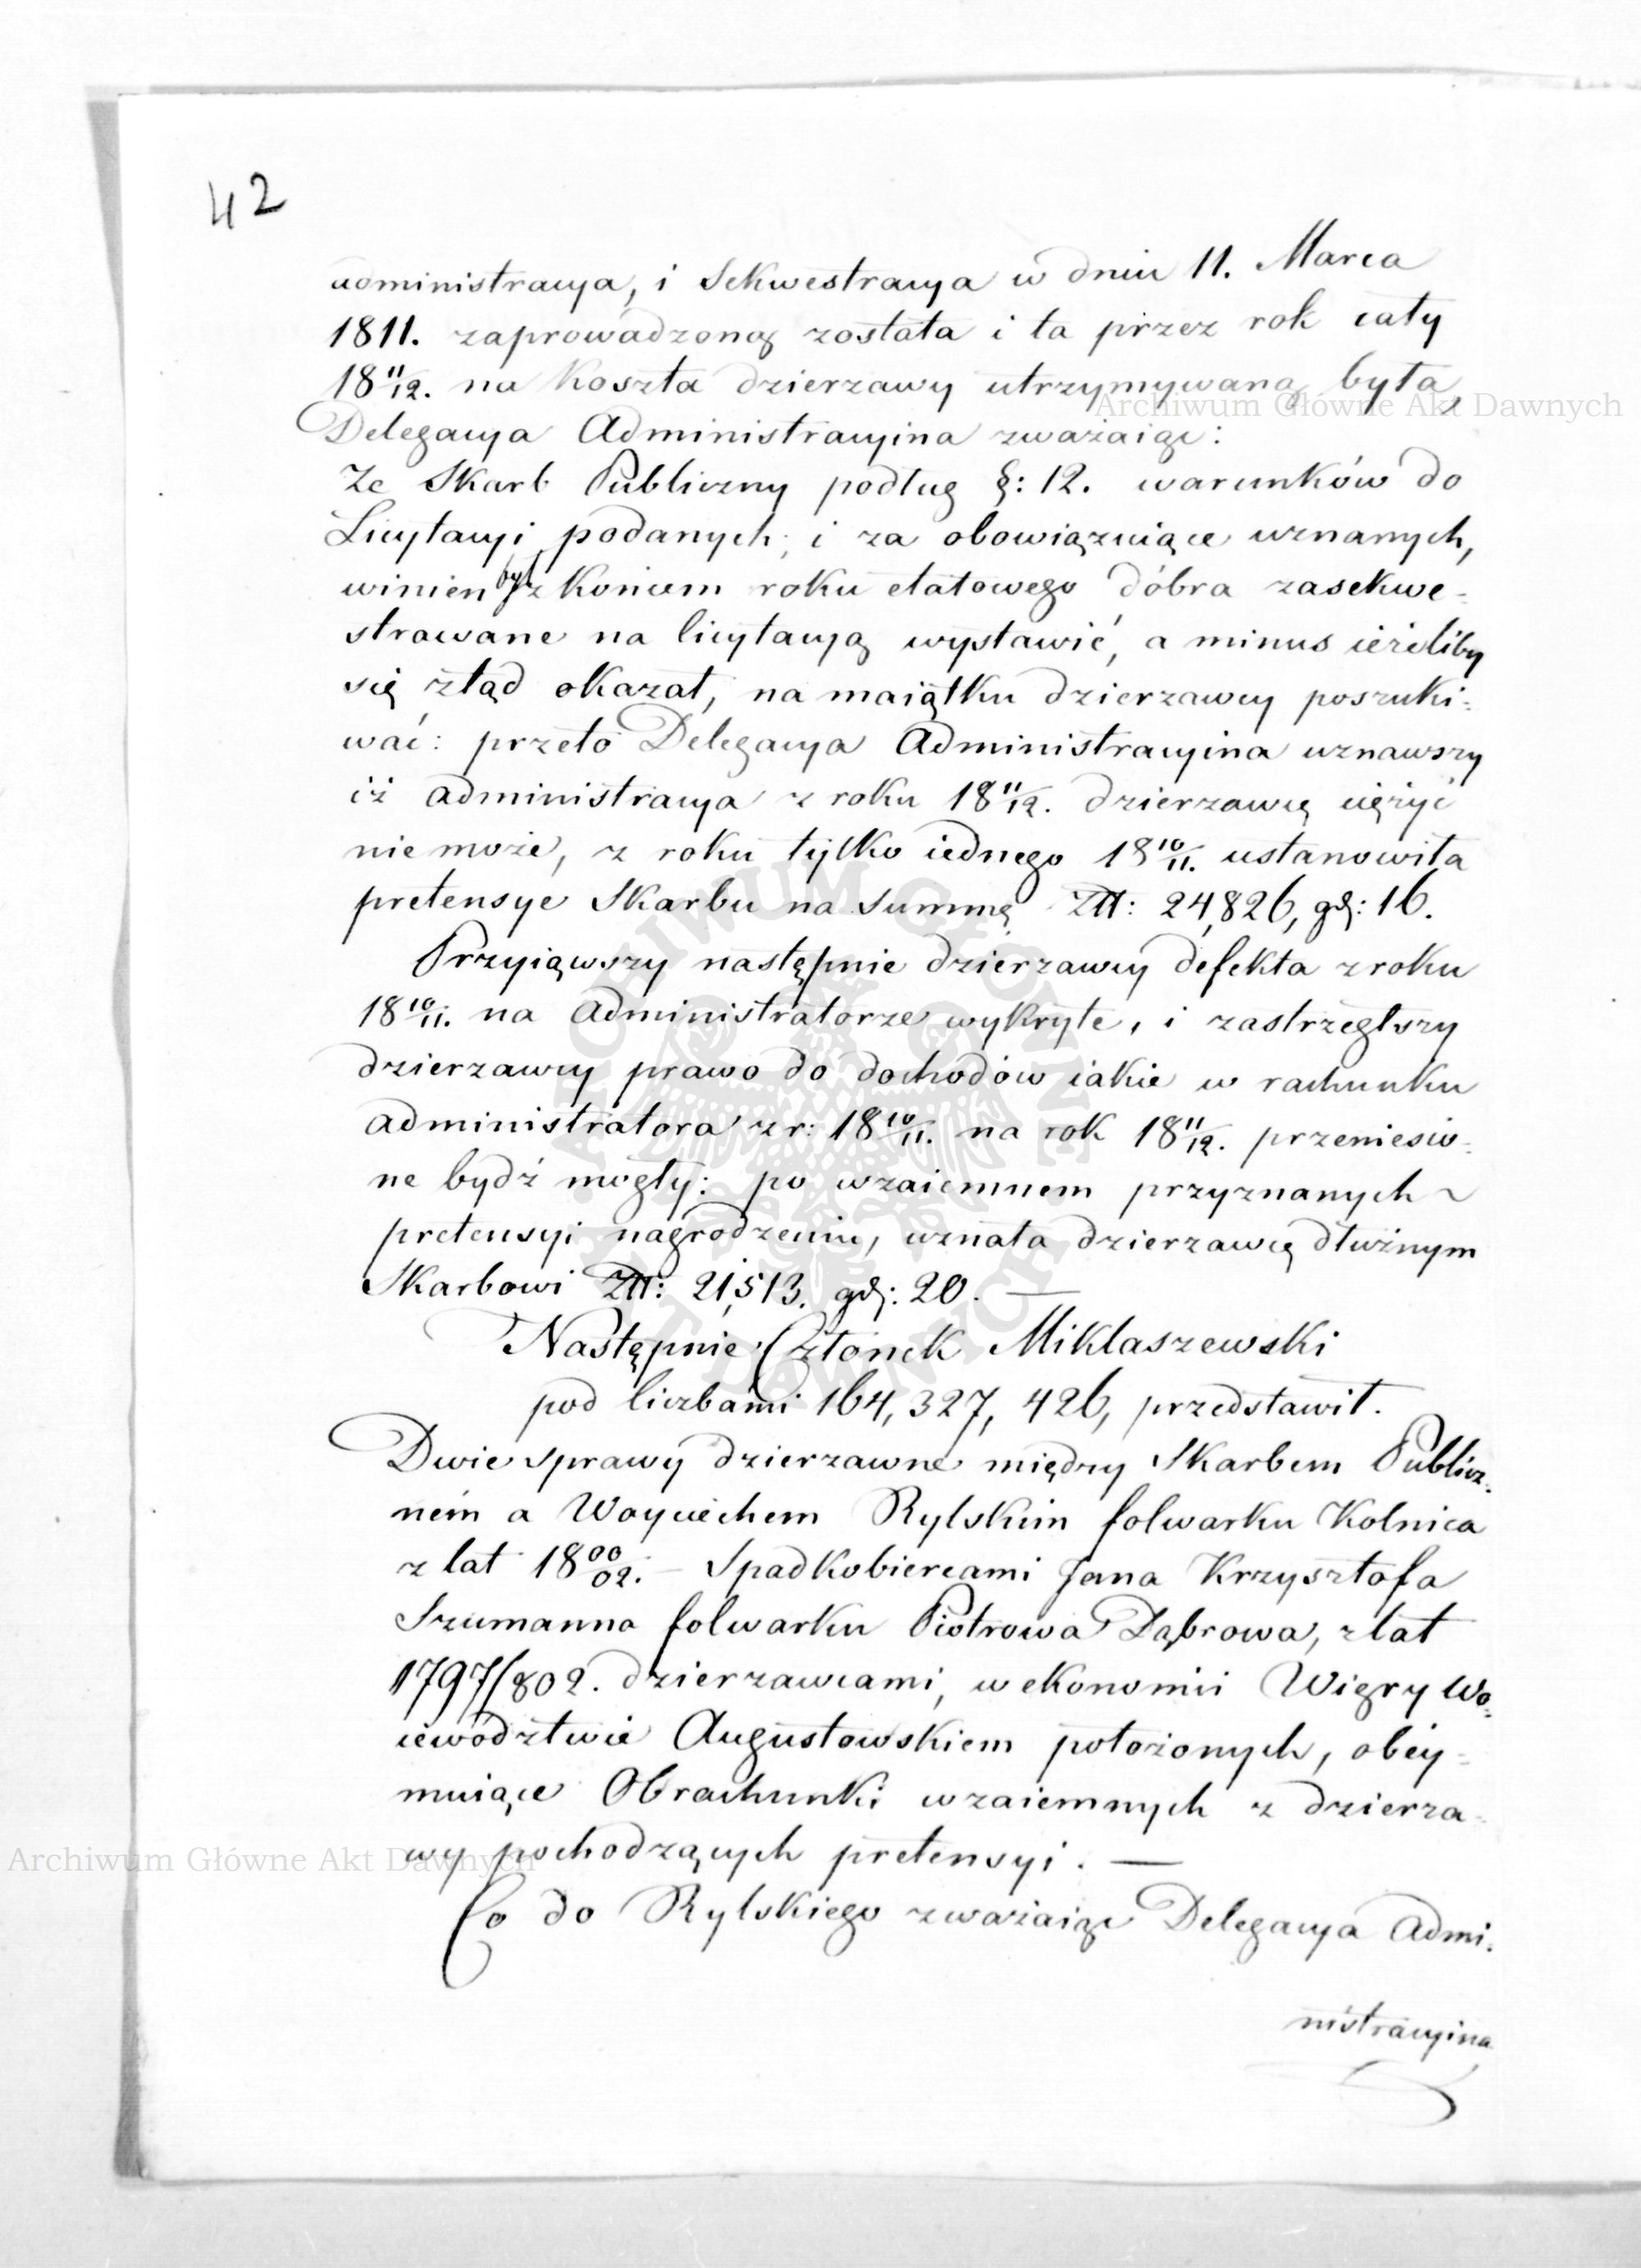 42
administracya, i Sekwestracya w dniu 11. Marca
1811. zaprowadzoną została i ta przez rok cały
18 11/12. na koszta dzierzawy utrzymywaną była,
Delegacya Administracyina zważaiąc:
Ze Skarb Publiczny podług §: 12. warunków do
Licytacyi podanych, i za obowiązuiące uznanych,
winien był z końcem roku etatowego dóbra zasekwe-
strowane na licytacyą wystawić, a minus ieżeliby
się ztąd okazał, na maiątku dzierzawcy poszuki-
wać: przeto Delegacya Administracyina uznawszy
iż administracya z roku 18 11/12. dzierzawcę ciężyć
nie może, z roku tylko iednego 18 10/11. ustanowiła
pretensye Skarbu na summę Złł: 24,826, gr: 16.
Przyiąwszy następnie dzierzawcy defekta z roku
18 10/11. na Administratorze wykryte, i zastrzegłszy
dzierzawcy prawo do dochodów iakie w rachunku
administratora z r: 18 10/11. na rok 18 11/12. przeniesio-
ne bydź mogły: po wzaiemnem przyznanych
pretensyi nagrodzeniu, uznała dzierzawcę dłużnym
Skarbowi Złł: 21,513. gr: 20. —
Następnie Członek Miklaszewski
pod liczbami 164, 327, 426, przedstawił.
Dwie sprawy dzierzawne między Skarbem Publicz-
nem a Woyciechem Rylskim folwarku Kolnica
z lat 18 00/02. – Spadkobiercami Jana Krzysztofa
Szumanna folwarku Piotrowa Dąbrowa, z lat
1797/802. dzierzawcami, w ekonomii Wigry Wo-
iewództwie Augustowskiem położonych, obey-
muiące Obrachunki wzaiemnych z dzierza-
wy pochodzących pretensyi. —
Co do Rylskiego zważaiąc Delegacya Admi-
nistracyina
Archiwum Główne Akt Dawnych
Archiwum Główne Akt Dawnych
ARCHIWUM GŁÓWNE AKT DAWNYCH